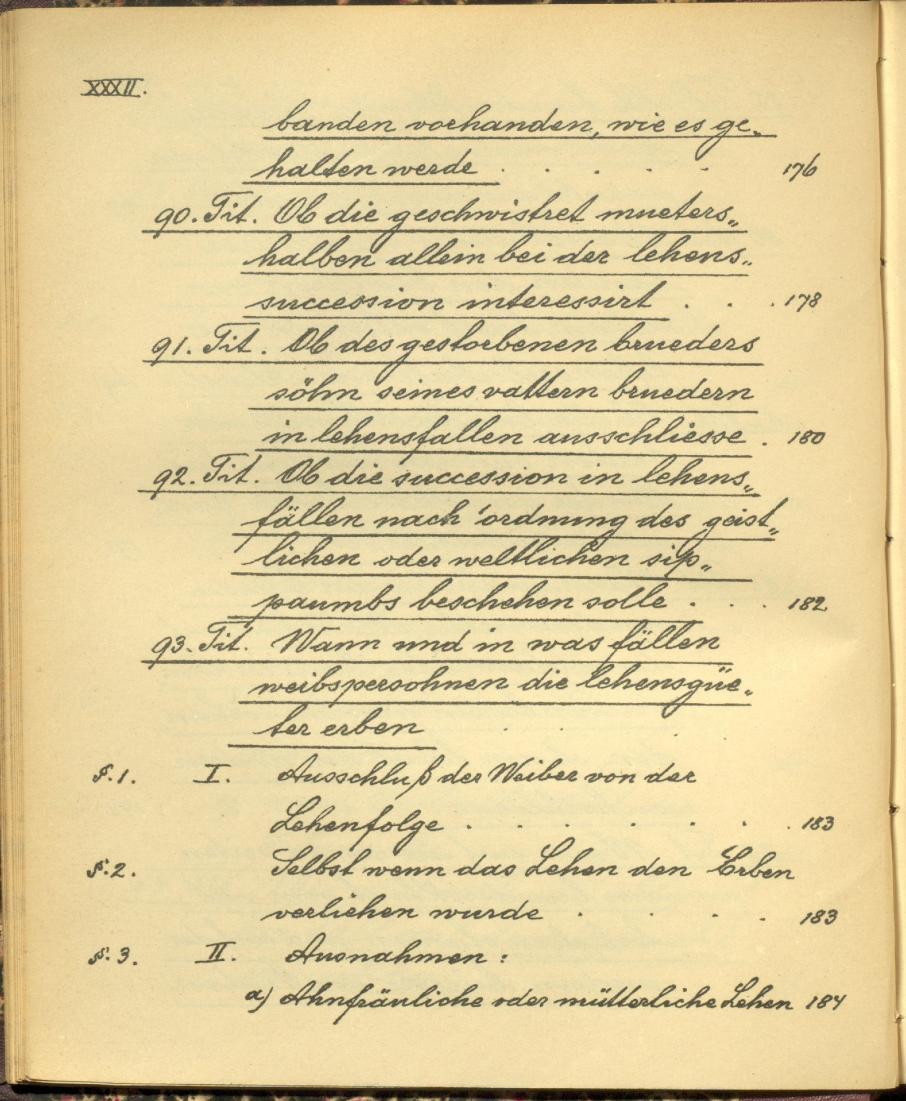 XXXII.
banden vorhanden, wie es ge„
halten werde . . . . . 176
90. Tit. Ob die geschwistret mueters„
halben allein bei der lehens„
succession interessirt . . . 178
91. Tit. Ob des gestorbenen brueders
söhn seines vattern bruedern
in lehensfallen ausschliesse . 180
92. Tit. Ob die succession in lehens„
fällen nach ordnung des geist„
lichen oder weltlichen sip„
paumbs beschehen solle . . . 182
93. Tit. Wann und in was fällen
weibspersohnen die lehensgüe„
ter erben . . .
§. 1. I. Ausschluß der Weiber von der
Lehenfolge . . . . . . 183
§. 2. Selbst wenn das Lehen den Erben
verliehen wurde . . . . 183
§. 3. II. Ausnahmen :
a) Ahnfräuliche oder mütterliche Lehen 184